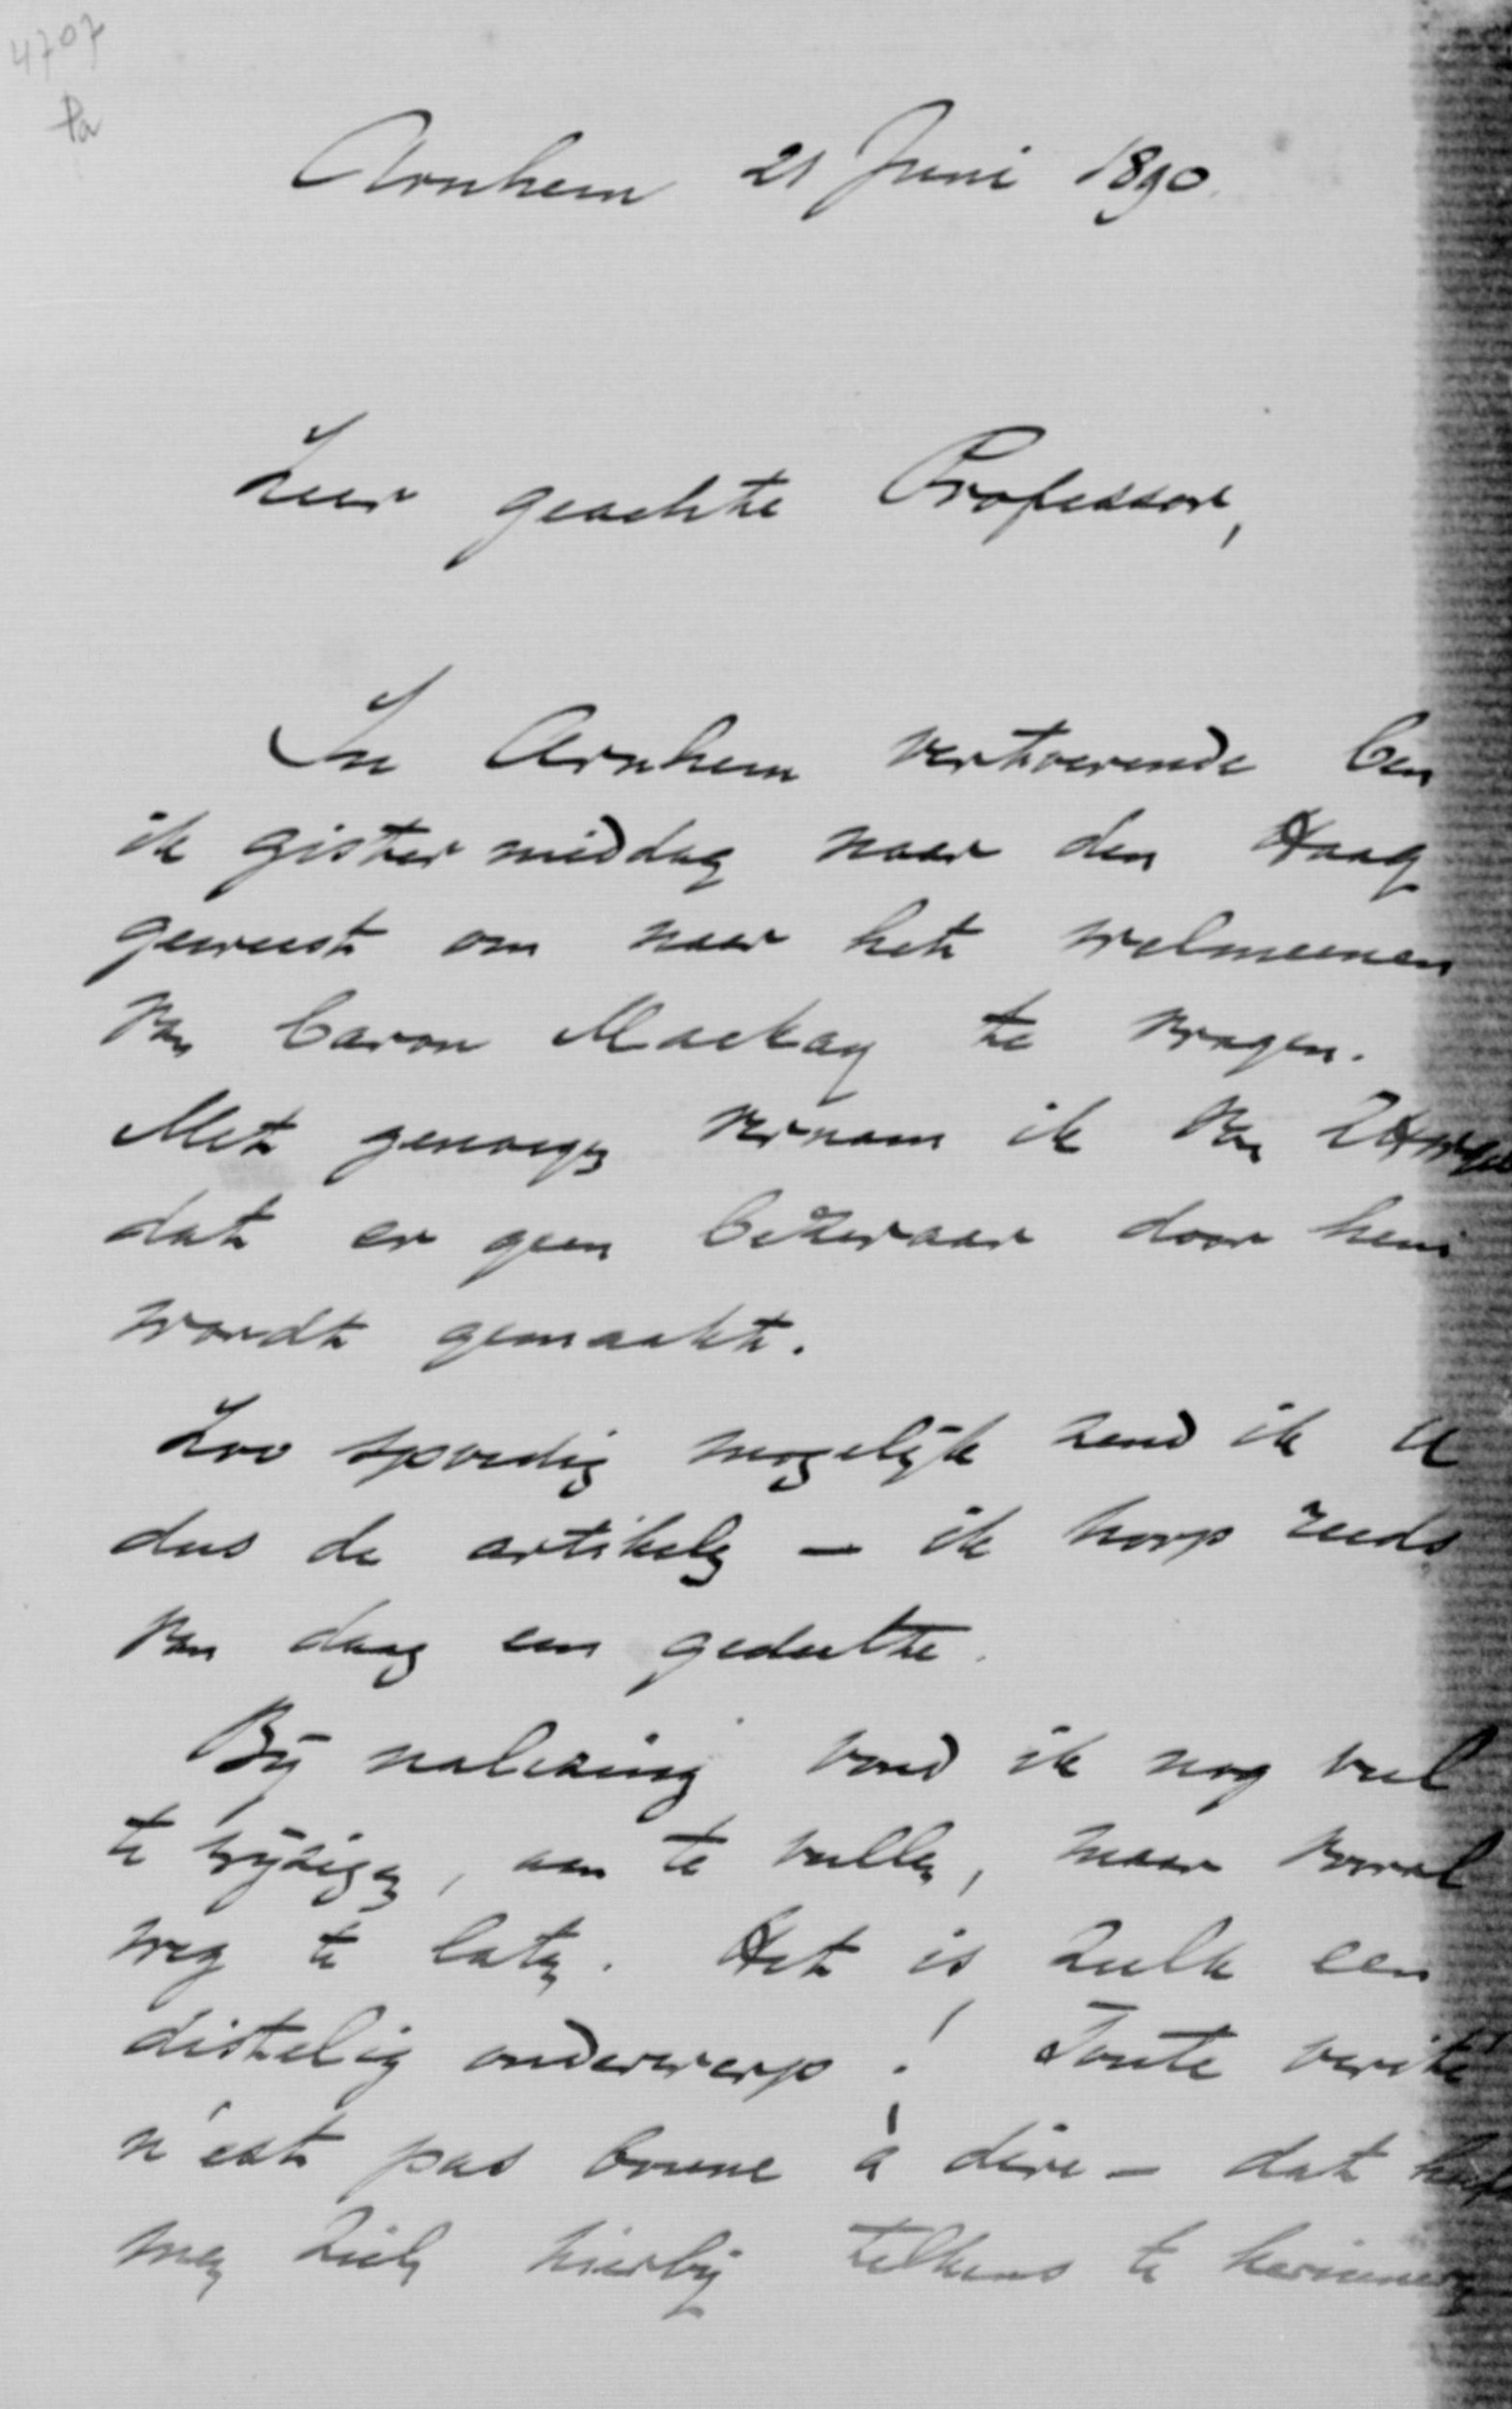 4707
Pa
Arnhem 21 Juni 1890.
Zeer geachte Professor,
In Arnhem vertoevende ben
ik gister middag naar den Haag
geweest om naar het welmeenen
van baron Mackay te vragen.
Met genoegen vernam ik van ZHEw
dat er geen bezwaar door hem
wordt gemaakt.
Zoo spoedig mogelijk zend ik U
dus de artikels – ik hoop reeds
van daag een gedeelte.
Bij nalezing vond ik nog veel
te wijzigen, aan te vullen, maar vooral
weg te laten. Het is zulk een
distelig onderwerp! Toute verité
n'est pas bonne à dire – dat heeft
men zich hierbij telkens te herinneren